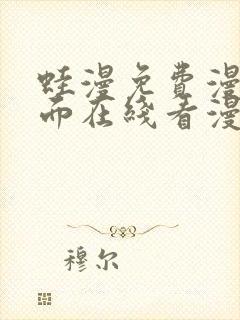 蛙漫免费漫
而在线看漫
穆尔